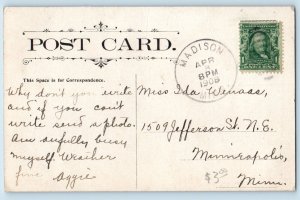 POST CARD.
This Space is for Correspondence.
MADISON
APR
8PM
1908
Why don't you write
and if you can't
write send a photo.
Am awfully busy
myself. Weather
fine Aggie
Miss Ida Wenass,
1509 Jefferson St. N.E.
Minneapolis,
Minn.
$3.00